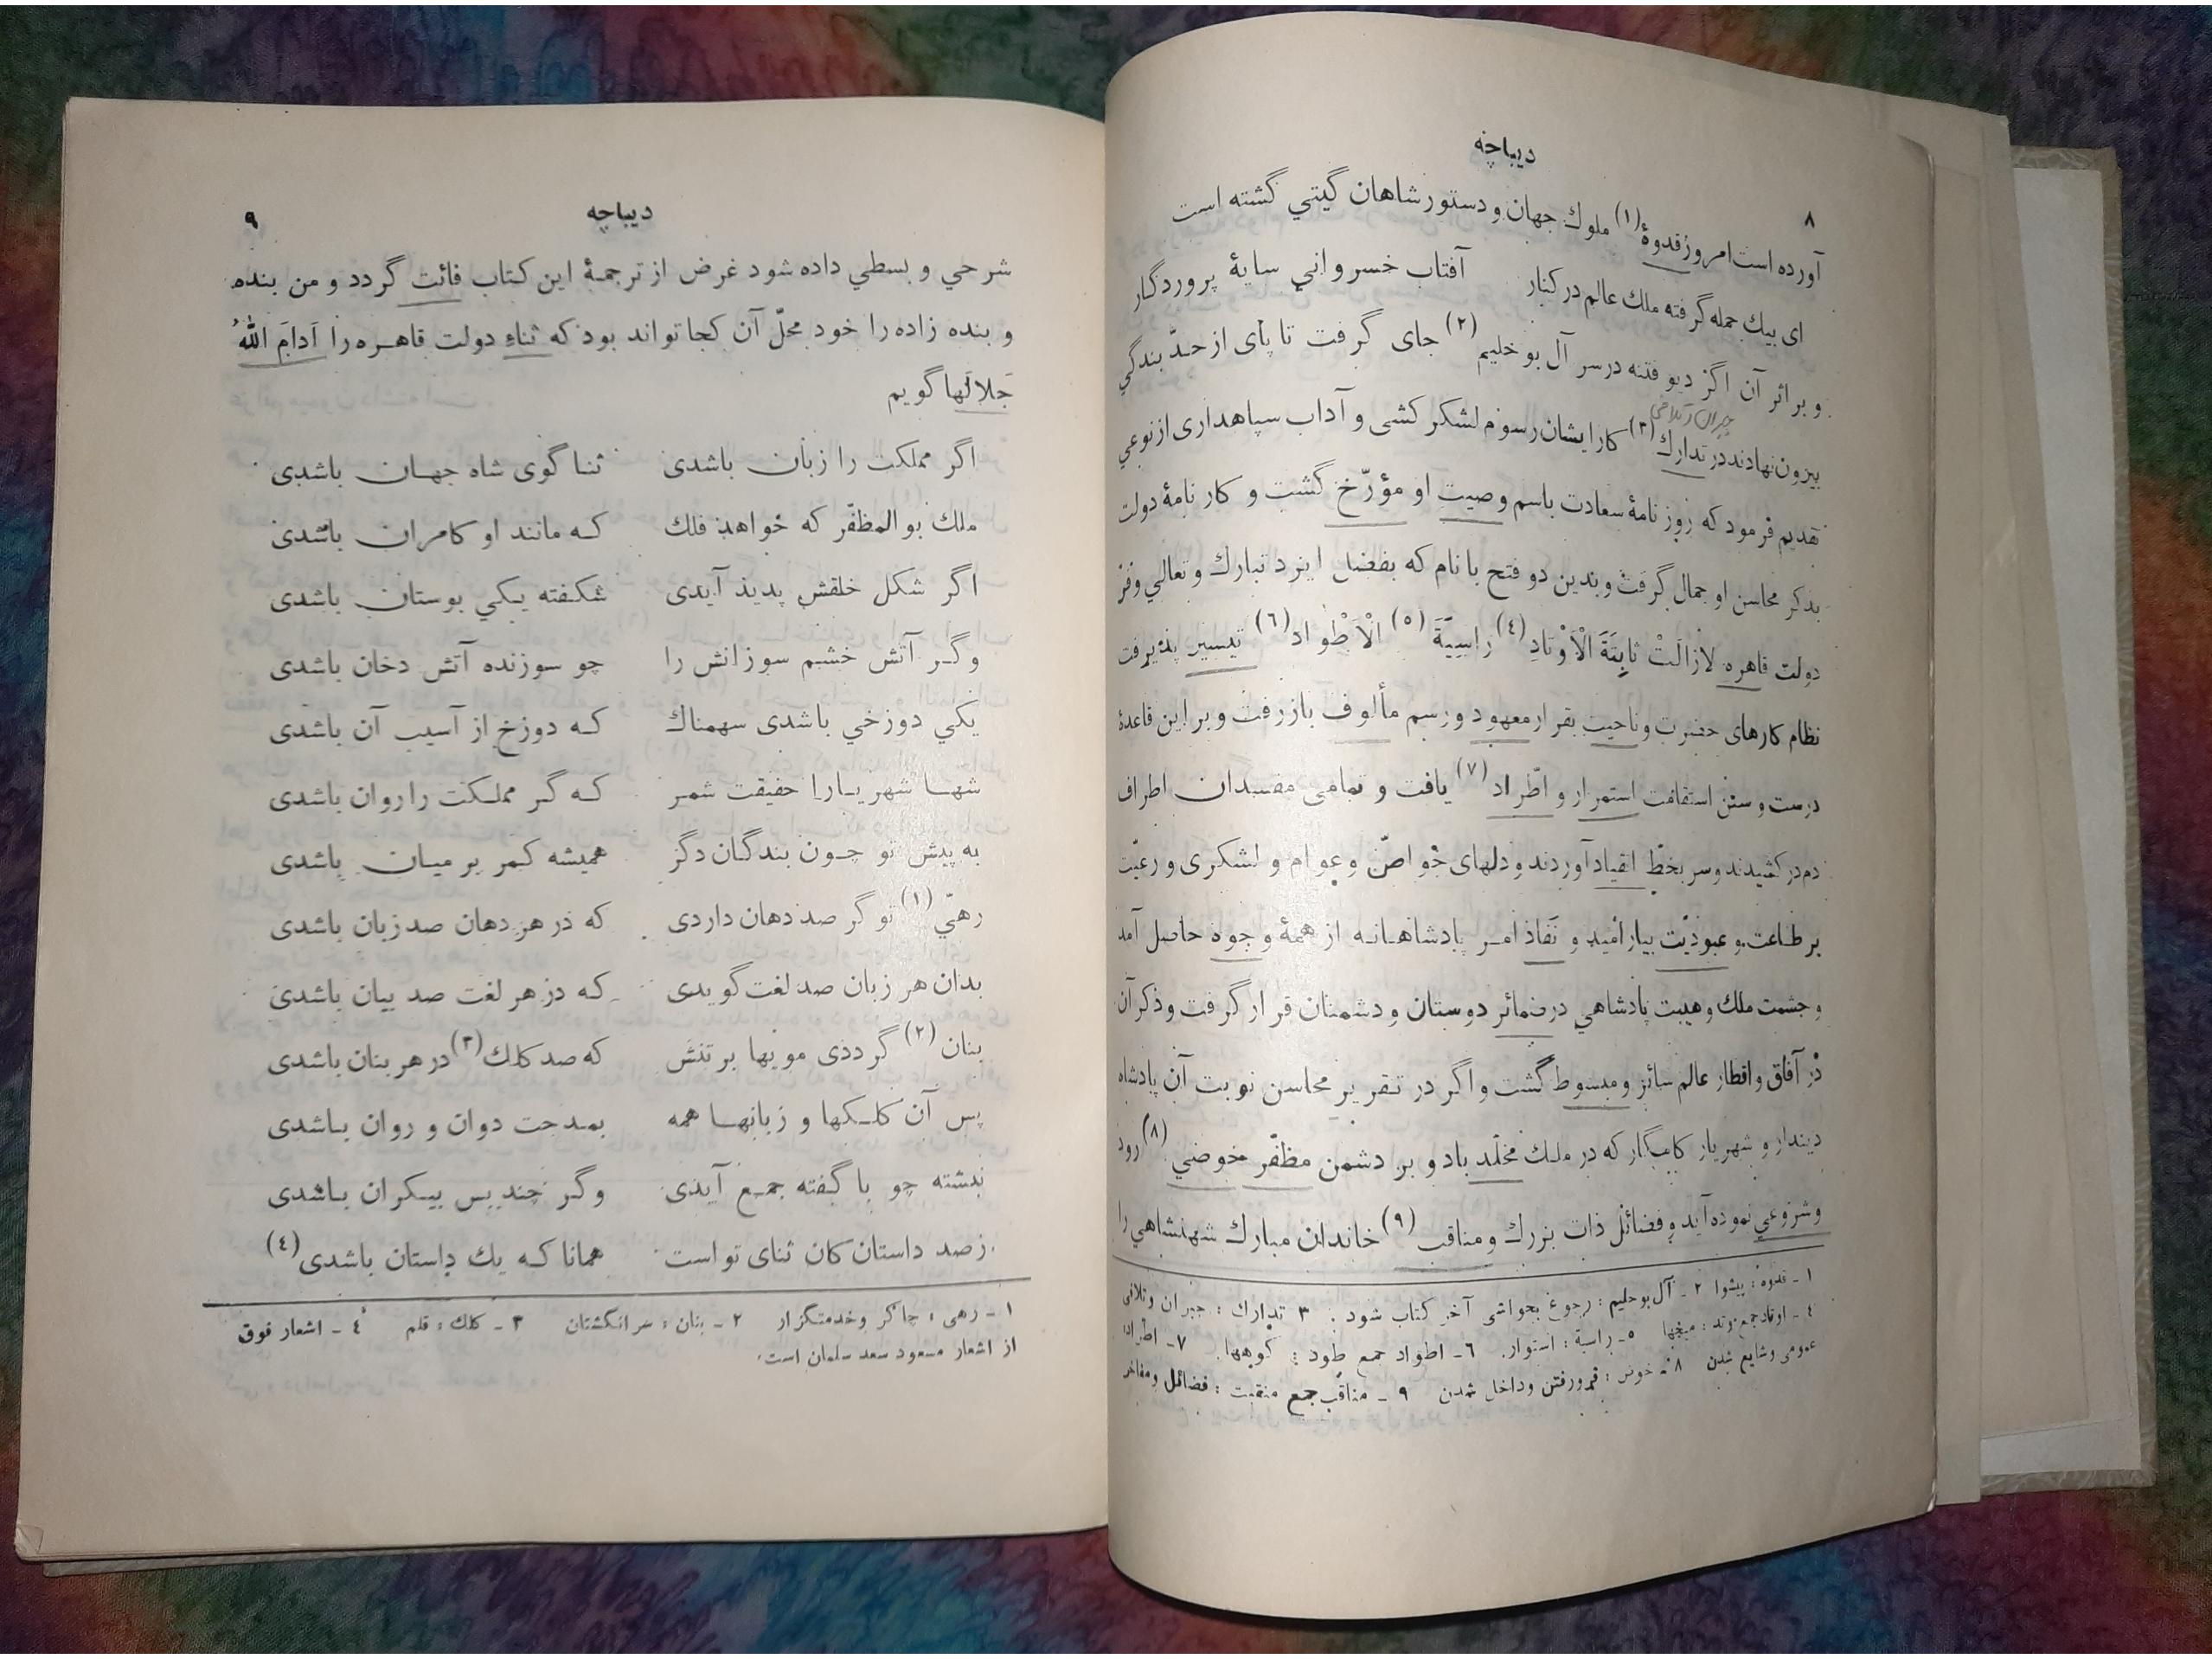 دیباچه
۸
آورده است امروز قدوۀ(۱) ملوك جهان و دستور شاهان گیتي گشته است
ای بیك حمله گرفته ملك عالم در کنار آفتاب خسرواني سایۀ پروردگار
و بر اثر آن اگر دیو فتنه در سر آل بوحلیم(۲) جای گرفت تا پای از حدّ بندگي
جبران و تلافی
بیرون نهادند در تدارك(۳) کار ایشان رسوم لشکر کشی و آداب سپاهداری از نوعي
تقدیم فرمود که روز نامۀ سعادت باسم وصیت او مؤرّخ گشت و کار نامۀ دولت
بذکر محاسن او جمال گرفت و بدین دو فتح با نام که بفضل ایزد تبارك و تعالي وفر
دولت قاهره لازالَتْ ثابِتَةَ الْاَوْتادِ(٤) راسِیَّةَ(٥) الْاَطْواد(٦) تیسیر پذیرفت
نظام کارهای حضرت و ناحیت بقرار معهود و رسم مألوف باز رفت و بر این قاعدۀ
درست و سنن استقامت استمرار و اطّراد(۷) یافت و تمامی مفسدان اطراف
دم در کشیدند و سر بخطّ انقیاد آوردند و دلهای خواصّ و عوام و لشکری و رعیّت
بر طاعت و عبودیّت بیارامید و نَفاذ امر پادشاهانه از همۀ وجوه حاصل آمد
و حشمت ملك و هیبت پادشاهي در ضمائر دوستان و دشمنان قرار گرفت و ذکر آن
در آفاق و اقطار عالم سائر و مبسوط گشت و اگر در تقریر محاسن نوبت آن پادشاه
دیندار و شهریار کامگار که در ملك مخلّد باد و بر دشمن مظفّر خوضي(۸) رود
و شروعي نموده آید و فضائل ذات بزرك و مناقب(۹) خاندان مبارك شهنشاهي را
۱ ـ قدوه : پیشوا ۲ ـ آل بوحلیم : رجوع بحواشی آخر کتاب شود . ۳ تدارك : جبران و تلافی
٤ ـ اوتاد جمع وتد : میخها ٥ ـ راسیة : استوار. ٦ ـ اطواد جمع طود : کوهها. ۷ ـ اطراد:
عمومی و شایع شدن ۸ ـ خوض : فرو رفتن و داخل شدن ۹ ـ مناقب جمع منقبت : فضائل و مفاخر
دیباچه
۹
شرحي و بسطي داده شود غرض از ترجمۀ این کتاب فائت گردد و من بنده
و بنده زاده را خود محلّ آن کجا تواند بود که ثناءِ دولت قاهره را اَدامَ اللهُ
جَلالَها گویم
اگر مملکت را زبان باشدی ثنا گوی شاه جهان باشدی
ملك بوالمظفّر که خواهد فلك که مانند او کامران باشدی
اگر شکل خلقش پدید آیدی شکفته یکي بوستان باشدی
وگر آتش خشم سوزانش را چو سوزنده آتش دخان باشدی
یکي دوزخي باشدی سهمناك که دوزخ از آسیب آن باشدی
شها شهریارا حقیقت شمر که گر مملکت را روان باشدی
به پیش تو چون بندگان دگر همیشه کمر بر میان باشدی
رهیّ(۱) تو گر صد دهان داردی که در هر دهان صد زبان باشدی
بدان هر زبان صد لغت گویدی که در هر لغت صد بیان باشدی
بنان(۲) گرددی مویها بر تنش که صد کلك(۳) در هر بنان باشدی
پس آن کلکها و زبانها همه بمدحت دوان و روان باشدی
نبشته چو با گفته جمع آیدی وگر چند بس بیکران باشدی
ز صد داستان کان ثنای تو است همانا که یك داستان باشدی(٤)
۱ ـ رهی : چاکر و خدمتگزار ۲ ـ بنان : سر انگشتان ۳ ـ کلك : قلم ٤ ـ اشعار فوق
از اشعار مسعود سعد سلمان است.